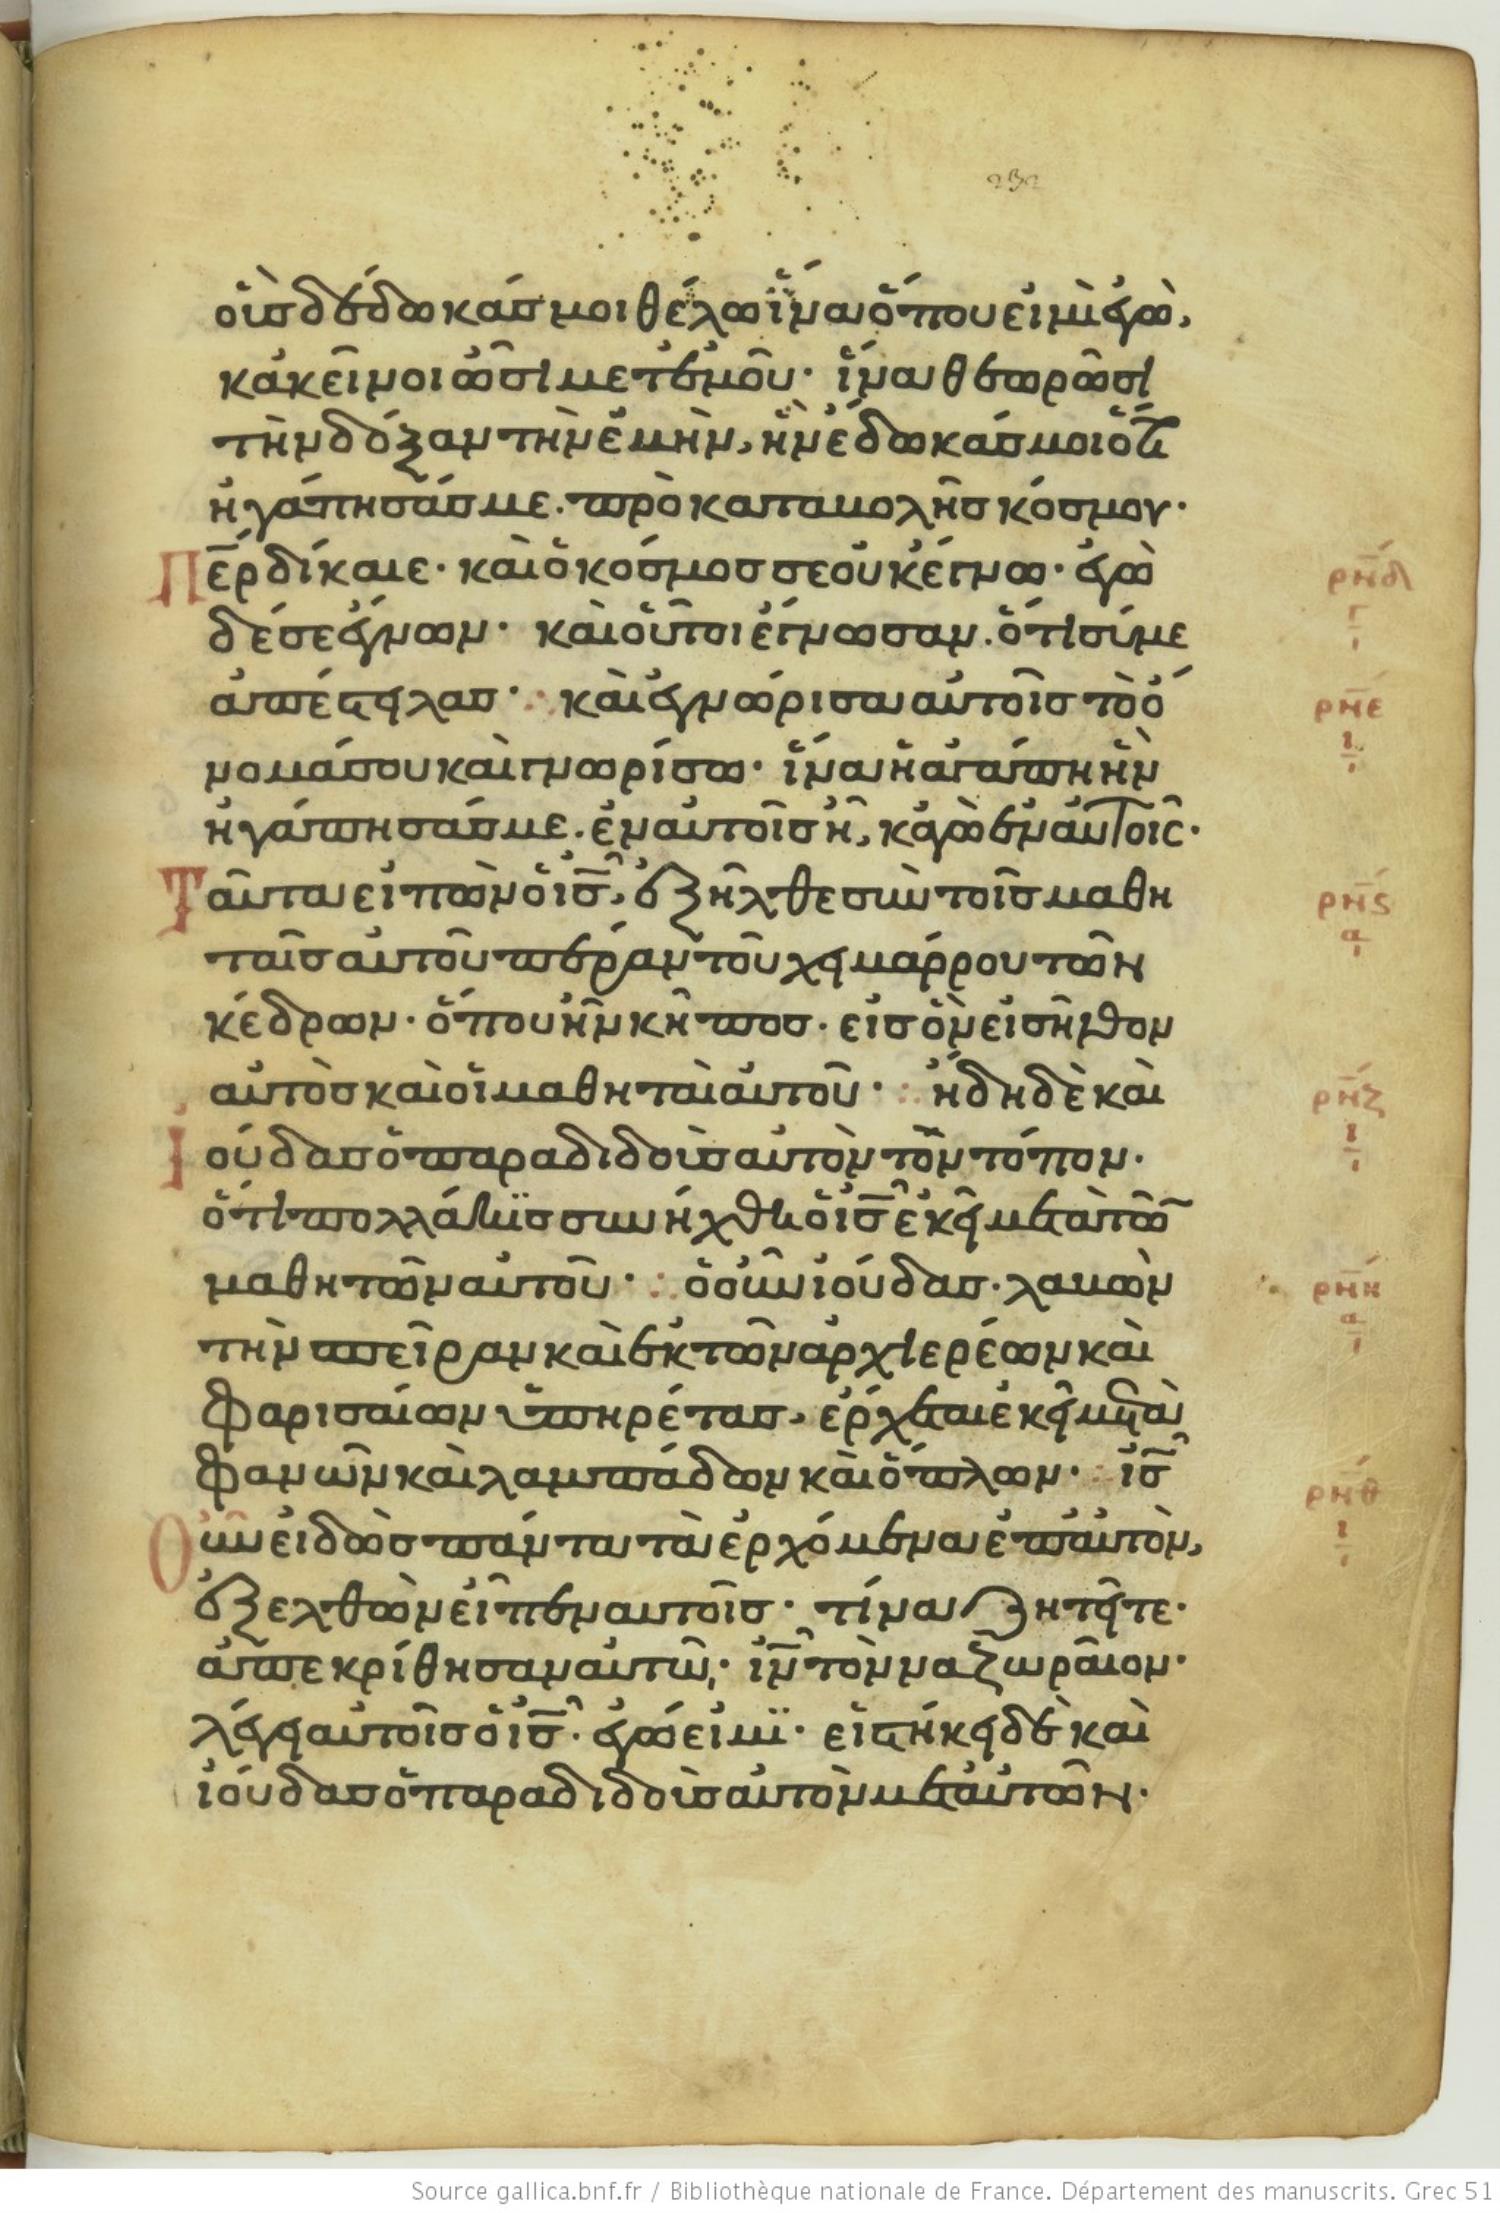 232
οὓς δέδωκάς μοι θέλω ἵνα ὅπου εἰμὶ ἐγὼ,
κἀκεῖνοι ὦσι μετ ἐμοῦ· ἵνα θεωρῶσι
τὴν δόξαν τὴν ἐμὴν, ἣν ἔδωκάς μοι ὅτι
ἠγάπησάς με. πρὸ καταβολῆς κόσμου·
Περ δίκαιε· καὶ ὁ κόσμος σε οὐκ έγνω· ἐγὼ
δέ σε έγνων· καὶ οὗτοι έγνωσαν. ὅτι σύ με
ἀπέστειλας· καὶ ἐγνώρισα αὐτοῖς τὸ ὄ
νομά σου καὶ γνωρίσω· ἵνα ἡ ἀγάπη ἣν
ἠγάπησάς με. ἐν αὐτοῖς ᾖ, κἀγὼ ἐν αὐτοῖς·
Ταῦτα εἰπὼν ὁ ις, ἐξῆλθε σὺν τοῖς μαθη
ταῖς αὐτοῦ πέραν τοῦ χειμάρρου τῶν
κέδρων· ὅπου ἦν κῆπος· εἰς ὃν εἰσῆλθον
αὐτὸς καὶ οἱ μαθηταὶ αὐτοῦ· ἤδη δὲ καὶ
Ἰούδας ὁ παραδιδοὺς αὐτὸν τὸν τόπον·
ὅτι πολλάκις συνήχθη ὁ ις ἐκεῖ μετὰ τῶν
μαθητῶν αὐτοῦ· ὁ οὖν ἰούδας· λαβὼν
τὴν σπεῖραν καὶ ἐκ τῶν ἀρχιερέων καὶ
φαρισαίων ὑπηρέτας, ἔρχεται ἐκεῖ μετὰ
φανῶν καὶ λαμπάδων καὶ ὅπλων· ις
Οὖν εἰδὼς πάντα τὰ ἐρχόμενα ἐπ αὐτὸν,
ἐξελθὼν εἶπεν αὐτοῖς· τίνα ζητεῖτε·
ἀπεκρίθησαν αὐτῶ· ιν τὸν ναζωραῖον·
λέγει αὐτοῖς ὁ ις· ἐγώ εἰμι· εἱστήκει δὲ καὶ
ἰούδας ὁ παραδιδοὺς αὐτὸν μετ αὐτῶν·
ρνδ
γ
ρνε
ι
ρνς
α
ρνζ
ι
ρνη
α
ρνθ
ι
Source gallica.bnf.fr / Bibliothèque nationale de France. Département des manuscrits. Grec 51